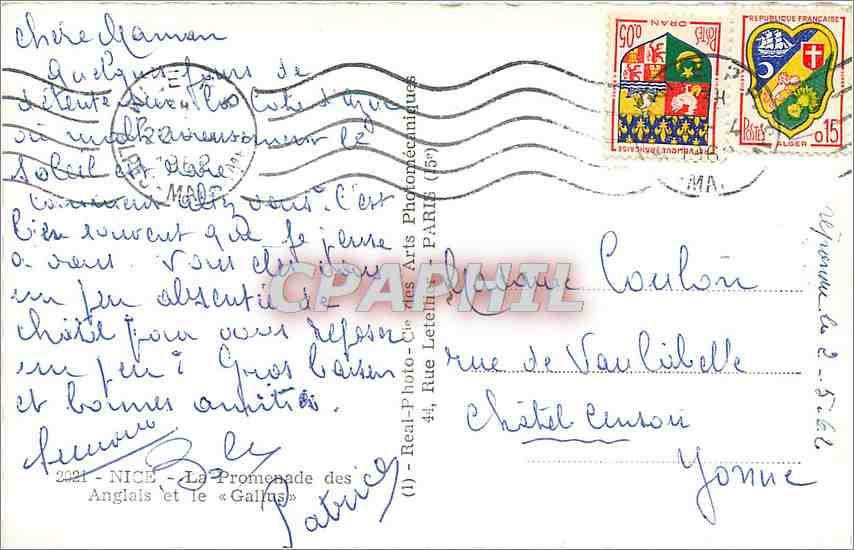 Chère Maman
Quelques jours de
détente sur la Cote d'Azur
où malheureusement le
soleil est
Comment allez vous? C'est
bien souvent que je pense
a vous. Vous
un peu absentée de
châtel pour vous reposer
un peu? Gros baisers
et bonnes amitiés.
Patrick
2021 - NICE - La Promenade des
Anglais et le «Gallus»
(1) - Real-Photo-Cie des Arts Photomécaniques
44, Rue Letellier - PARIS (15e)
CPAPHIL
POSTES
ORAN
0,05
REPUBLIQUE FRANÇAISE
REPUBLIQUE FRANÇAISE
POSTES
0,15
ALGER
Madame Coulon
rue de Vaulabelle
Châtel Censoir
Yonne
réponse le 2-5-62